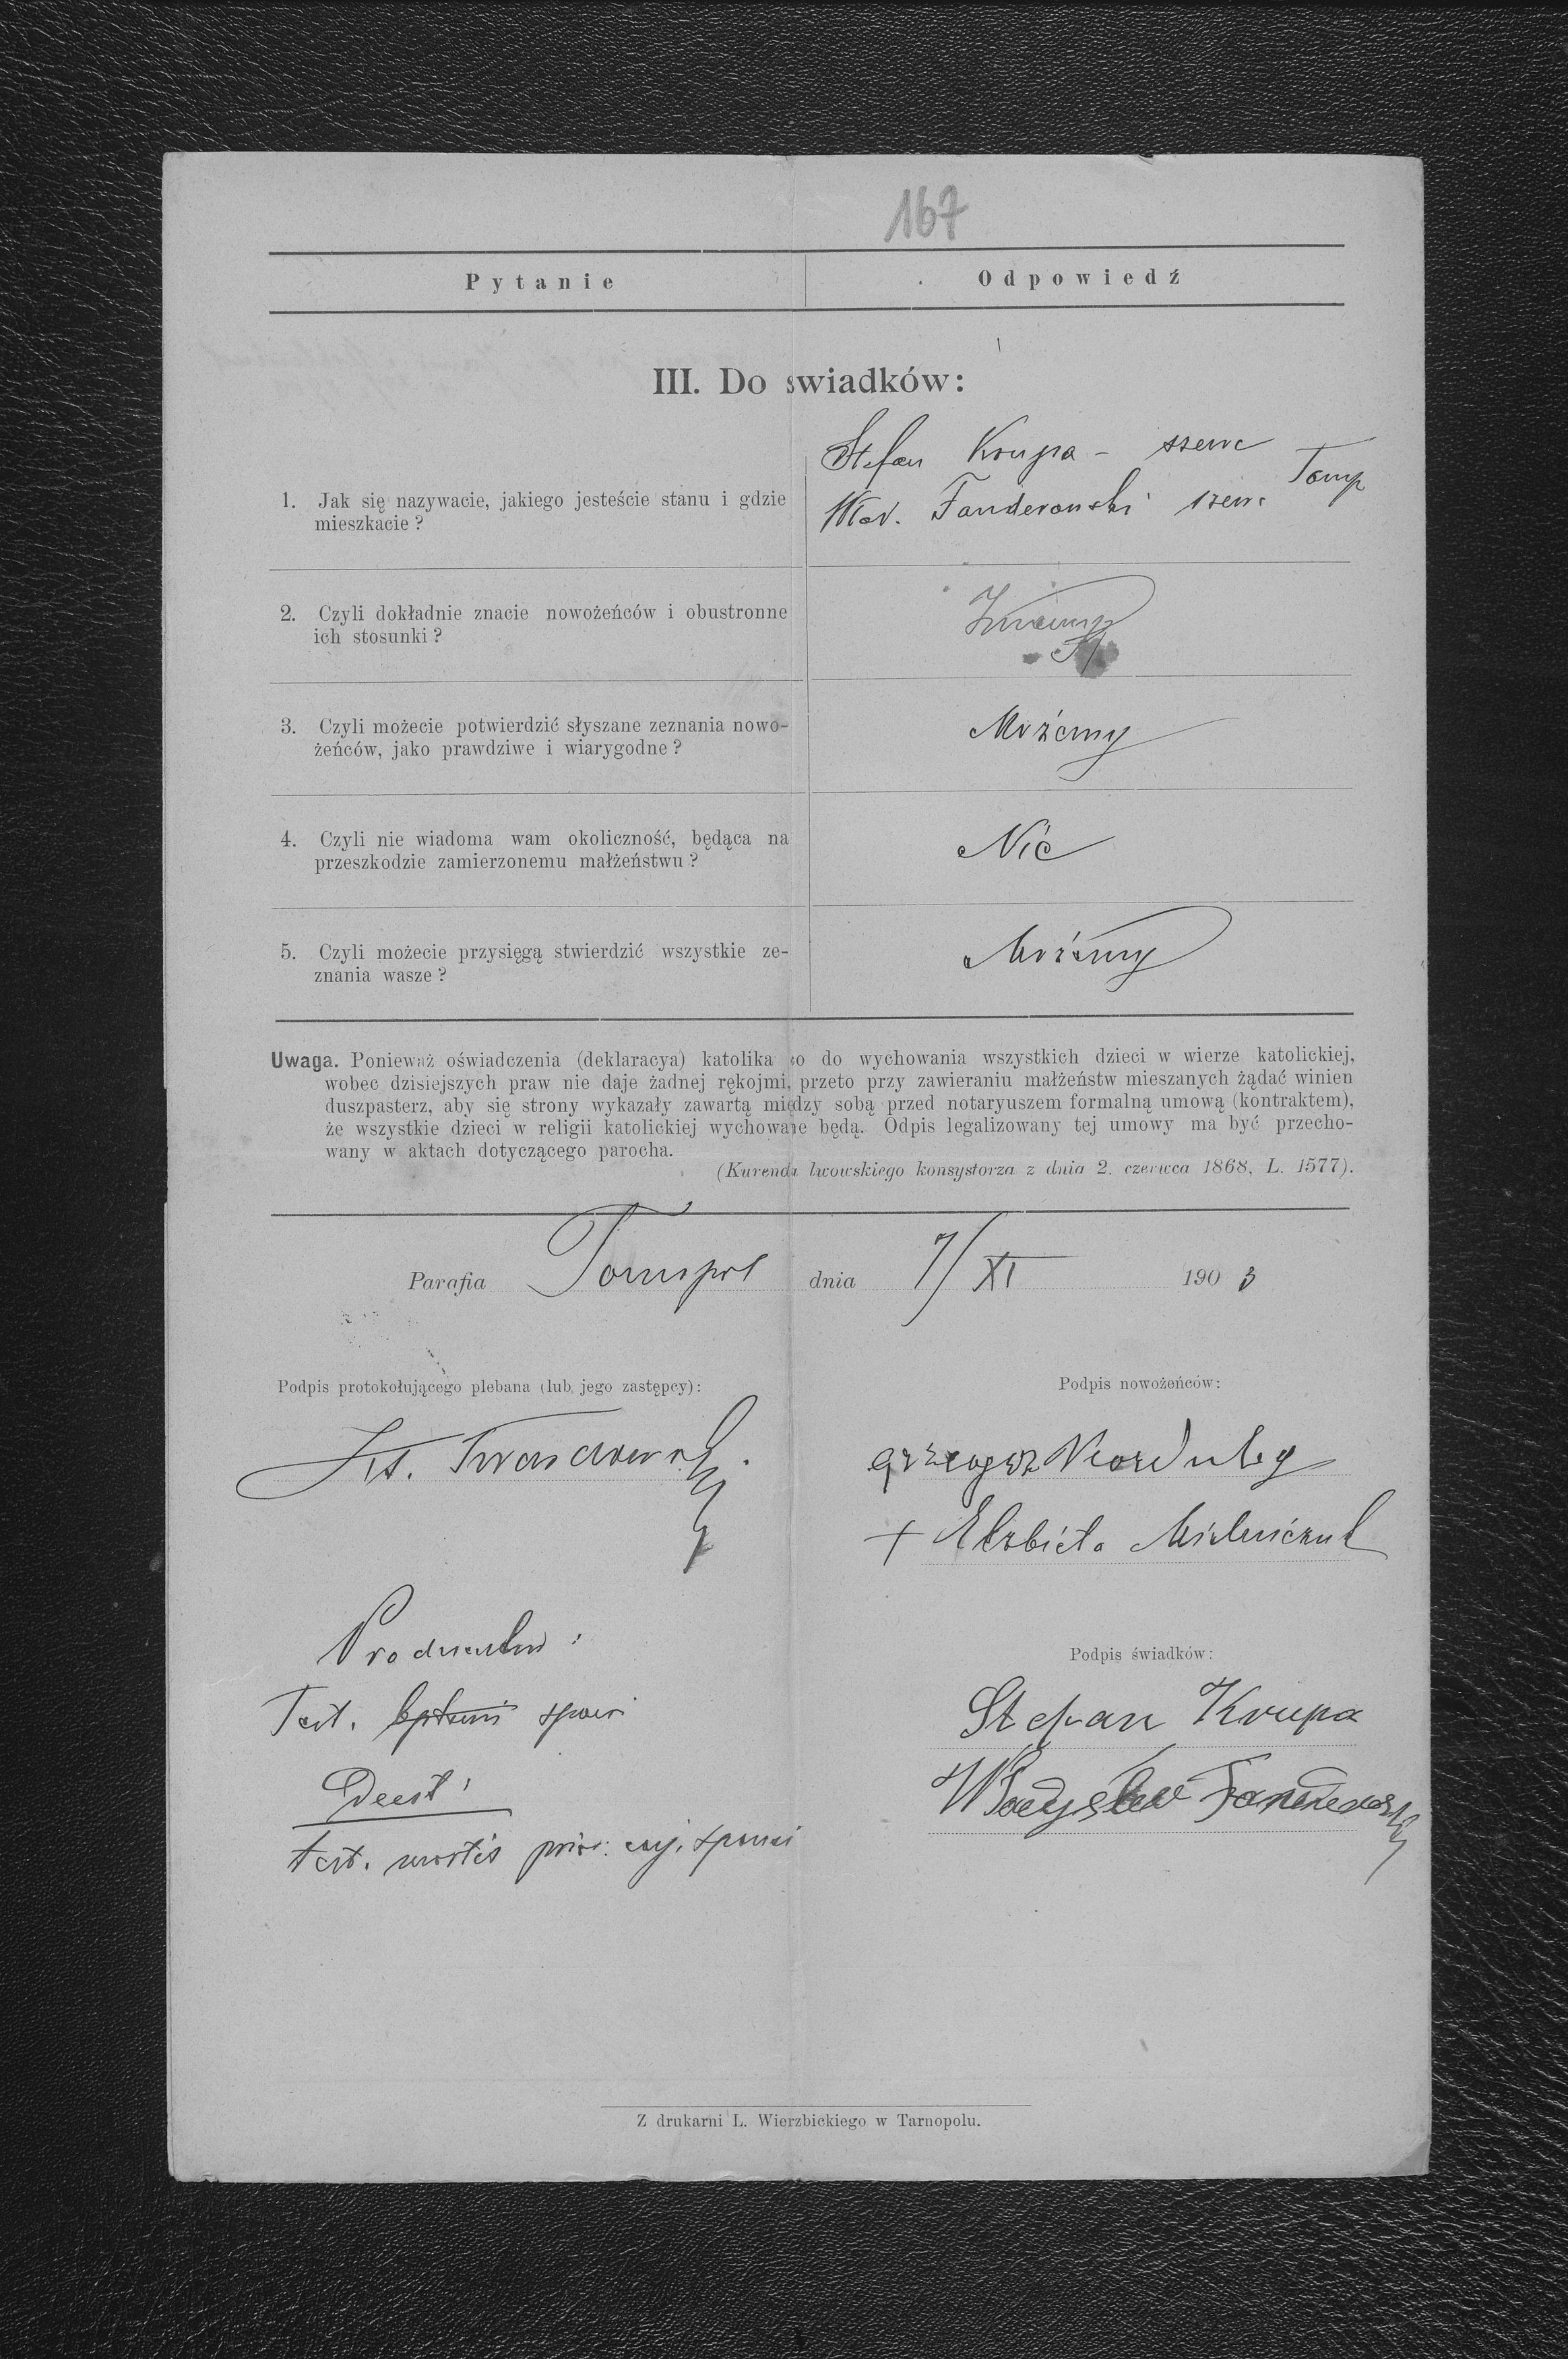 167
Pytanie
Odpowiedź
III. Do świadków:
1. Jak się nazywacie, jakiego jesteście stanu i gdzie
mieszkacie?
Stefan Krupa - szewc
Wład. Fanderowski szewc Tarnp
2. Czyli dokładnie znacie nowożeńców i obustronne
ich stosunki?
Znamy
3. Czyli możecie potwierdzić słyszane zeznania nowo-
żeńców, jako prawdziwe i wiarygodne?
Możemy
4. Czyli nie wiadoma wam okoliczność, będąca na
przeszkodzie zamierzonemu małżeństwu?
Nie
5. Czyli możecie przysięgą stwierdzić wszystkie ze-
znania wasze?
Możemy
Uwaga. Ponieważ oświadczenia (deklaracya) katolika co do wychowania wszystkich dzieci w wierze katolickiej,
wobec dzisiejszych praw nie daje żadnej rękojmi, przeto przy zawieraniu małżeństw mieszanych żądać winien
duszpasterz, aby się strony wykazały zawartą między sobą przed notaryuszem formalną umową (kontraktem),
że wszystkie dzieci w religii katolickiej wychowane będą. Odpis legalizowany tej umowy ma być przecho-
wany w aktach dotyczącego parocha.
(Kurenda lwowskiego konsystorza z dnia 2. czerwca 1868, L. 1577).
Parafia Tarnopol dnia 7/XI 1903
Podpis protokołującego plebana (lub jego zastępcy):
Ks. Twardowski
Podpis nowożeńców:
+ Elżbieta
Test. sponsi
Deest:
test. mortis prior. conj. sponsi
Podpis świadków:
Stefan Krupa
Władysław Fanderowski
Z drukarni L. Wierzbickiego w Tarnopolu.